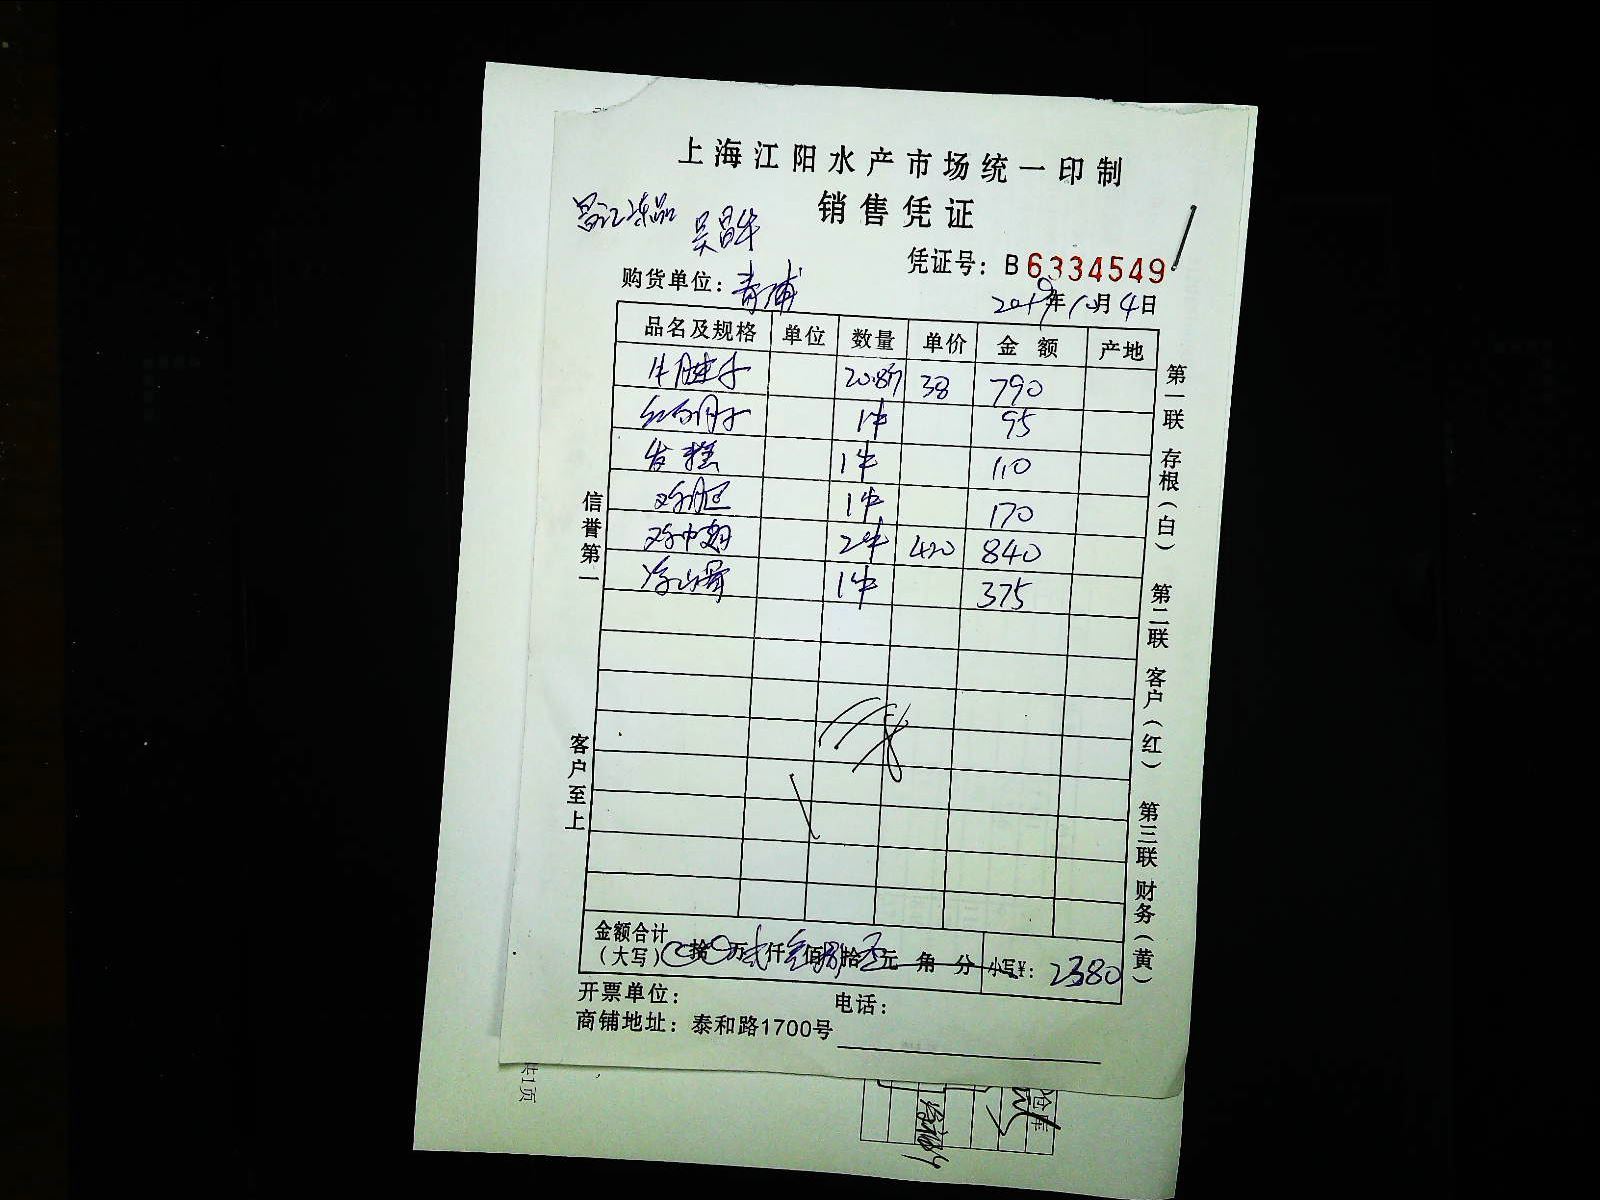 上海江阳水产市场统一印制
销售凭证
昌江冻品 吴昌华
凭证号：B6334549
购货单位：青浦
2019年10月4日
品名及规格 单位 数量 单价 金额 产地
牛腱子 20.8斤 38 790
1件 95
发糕 1件 110
1件 170
鸡中翅 2件 420 840
1件 375
信誉第一
客户至上
第一联 存根（白） 第二联 客户（红） 第三联 财务（黄）
金额合计
（大写） 拾 万贰仟叁佰捌拾 元 角 分 小写¥：2380
开票单位： 电话：
商铺地址：泰和路1700号
共1页